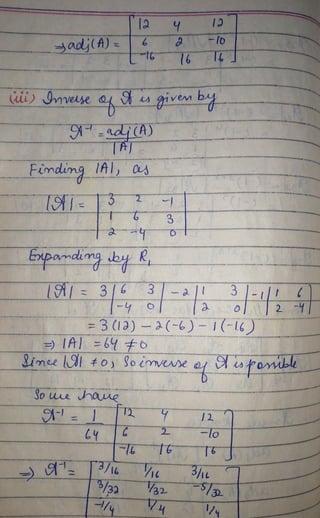 ⇒ adj(A) = [ 12 4 12
6 2 -10
-16 16 16 ]
(iii) Inverse of A is given by
A⁻¹ = adj(A)
|A|
Finding |A|, as
|A| = | 3 2 -1
1 6 3
2 -4 0 |
Expanding by R₁
|A| = 3 | 6 3 | - 2 | 1 3 | -1 | 1 6
-4 0 | 2 0 | 2 -4 |
= 3(12) - 2(-6) - 1(-16)
⇒ |A| = 64 ≠ 0
Since |A| ≠ 0, So inverse of A is possible
So we have
A⁻¹ = 1 [ 12 4 12
64 6 2 -10
-16 16 16 ]
⇒ A⁻¹ = [ 3/16 1/16 3/16
3/32 1/32 -5/32
-1/4 1/4 1/4